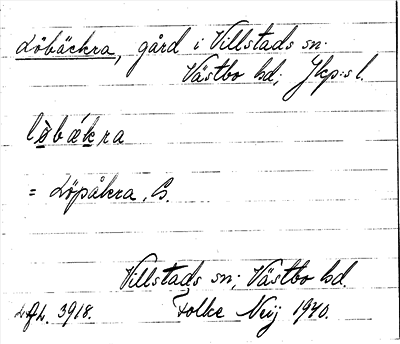 Löbäckra, gård i Villstads sn.
Västbo hd; Jkp:s l.
lòbákra
= Löpåkra, B.
Villstads sn; Västbo hd.
3918. Folke Neij 1940.